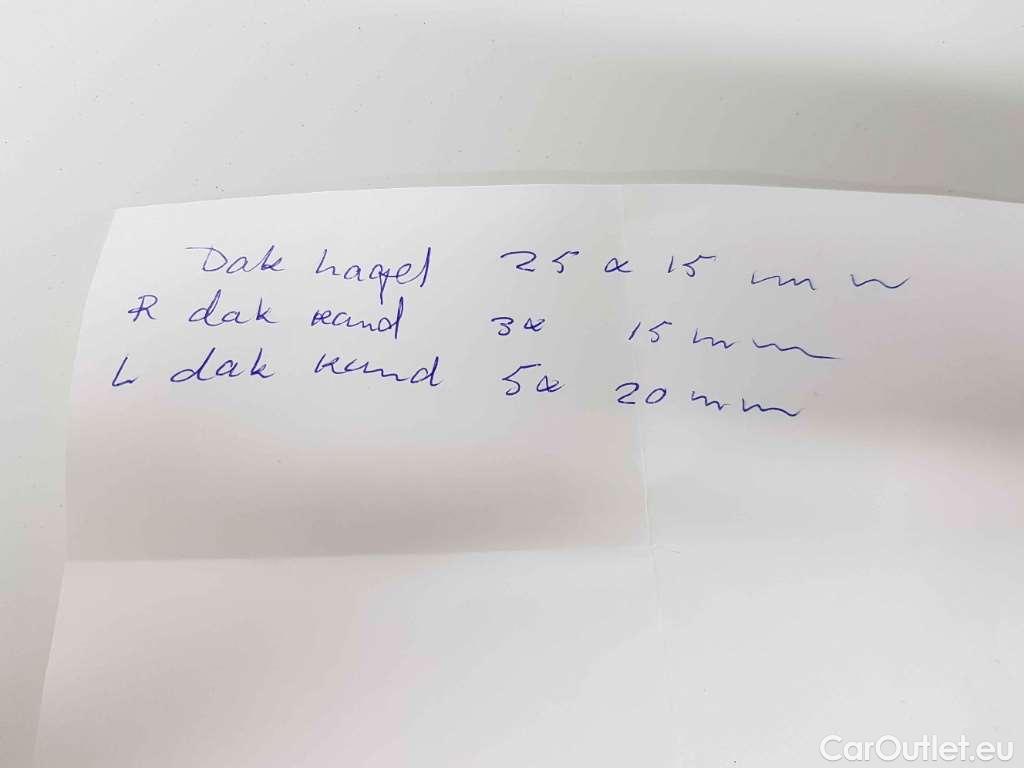 Dak hagel 25 x 15 mm
R dak rand 3x 15 mm
L dak rand 5x 20 mm
CarOutlet.eu